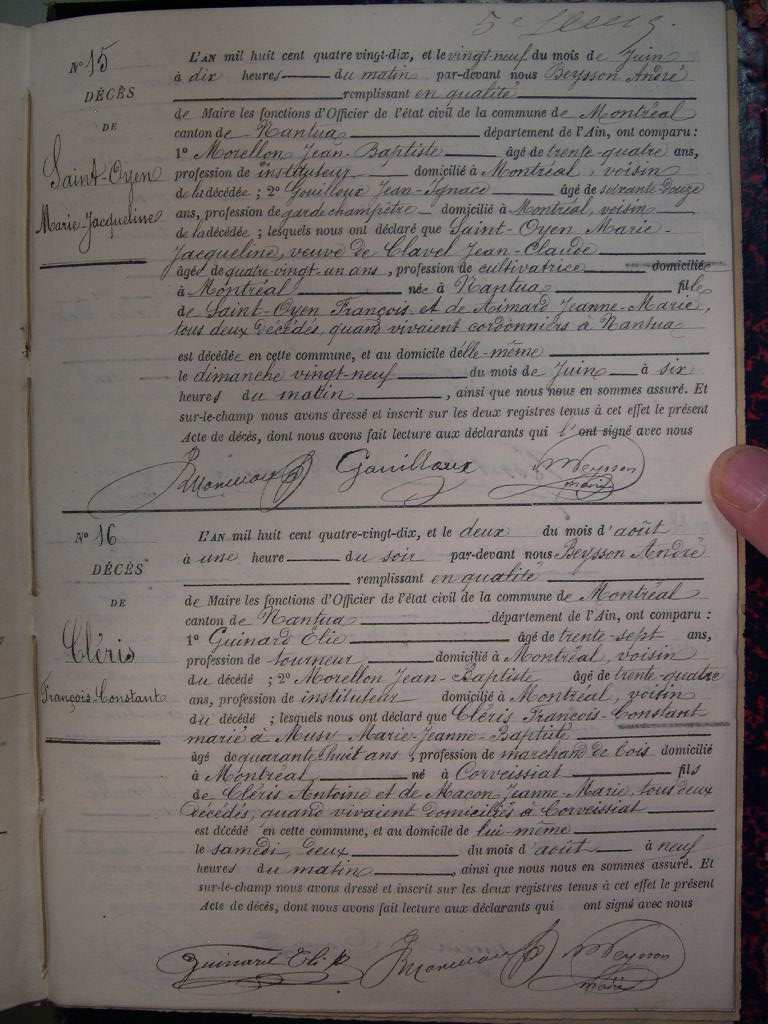 5e
N° 15
DÉCÈS
DE
Saint-Oyen
Marie-Jacqueline
L'AN mil huit cent quatre vingt-dix, et le vingt-neuf du mois de Juin
à dix heures du matin par-devant nous Beysson André
remplissant en qualité
de Maire les fonctions d'Officier de l'état civil de la commune de Montréal
canton de Nantua département de l'Ain, ont comparu :
1° Morellon Jean-Baptiste âgé de trente-quatre ans,
profession de instituteur domicilié à Montréal, voisin
de la décédée ; 2° Gouilloux Jean-Ignace âgé de soixante-douze
ans, profession de garde champêtre domicilié à Montréal, voisin
de la décédée ; lesquels nous ont déclaré que Saint-Oyen Marie-
Jacqueline, veuve de Clavel Jean-Claude
âgée de quatre-vingt-un ans, profession de cultivatrice domiciliée
à Montréal née à Nantua fille
de Saint-Oyen François et de Aimard Jeanne-Marie,
tous deux décédés, quand vivaient cordonniers à Nantua
est décédée en cette commune, et au domicile d'elle-même
le dimanche vingt-neuf du mois de Juin à six
heures du matin, ainsi que nous nous en sommes assuré. Et
sur-le-champ nous avons dressé et inscrit sur les deux registres tenus à cet effet le présent
Acte de décès, dont nous avons fait lecture aux déclarants qui l'ont signé avec nous
Morellon JB Gouilloux Beysson
maire
N° 16
DÉCÈS
DE
Cléris
François-Constant
L'AN mil huit cent quatre-vingt-dix, et le deux du mois d'août
à une heure du soir par-devant nous Beysson André
remplissant en qualité
de Maire les fonctions d'Officier de l'état civil de la commune de Montréal
canton de Nantua département de l'Ain, ont comparu :
1° Guinard Elie âgé de trente-sept ans,
profession de tourneur domicilié à Montréal, voisin
du décédé ; 2° Morellon Jean-Baptiste âgé de trente-quatre
ans, profession de instituteur domicilié à Montréal, voisin
du décédé ; lesquels nous ont déclaré que Cléris François-Constant
marié à Musy Marie-Jeanne-Baptiste
âgé de quarante huit ans, profession de marchand de bois domicilié
à Montréal né à Corveissiat fils
de Cléris Antoine et de Macon Jeanne-Marie, tous deux
décédés, quand vivaient domiciliés à Corveissiat
est décédé en cette commune, et au domicile de lui-même
le samedi, deux du mois d'août à neuf
heures du matin, ainsi que nous nous en sommes assuré. Et
sur-le-champ nous avons dressé et inscrit sur les deux registres tenus à cet effet le présent
Acte de décès, dont nous avons fait lecture aux déclarants qui ont signé avec nous
Guinard Elie Morellon JB Beysson
maire